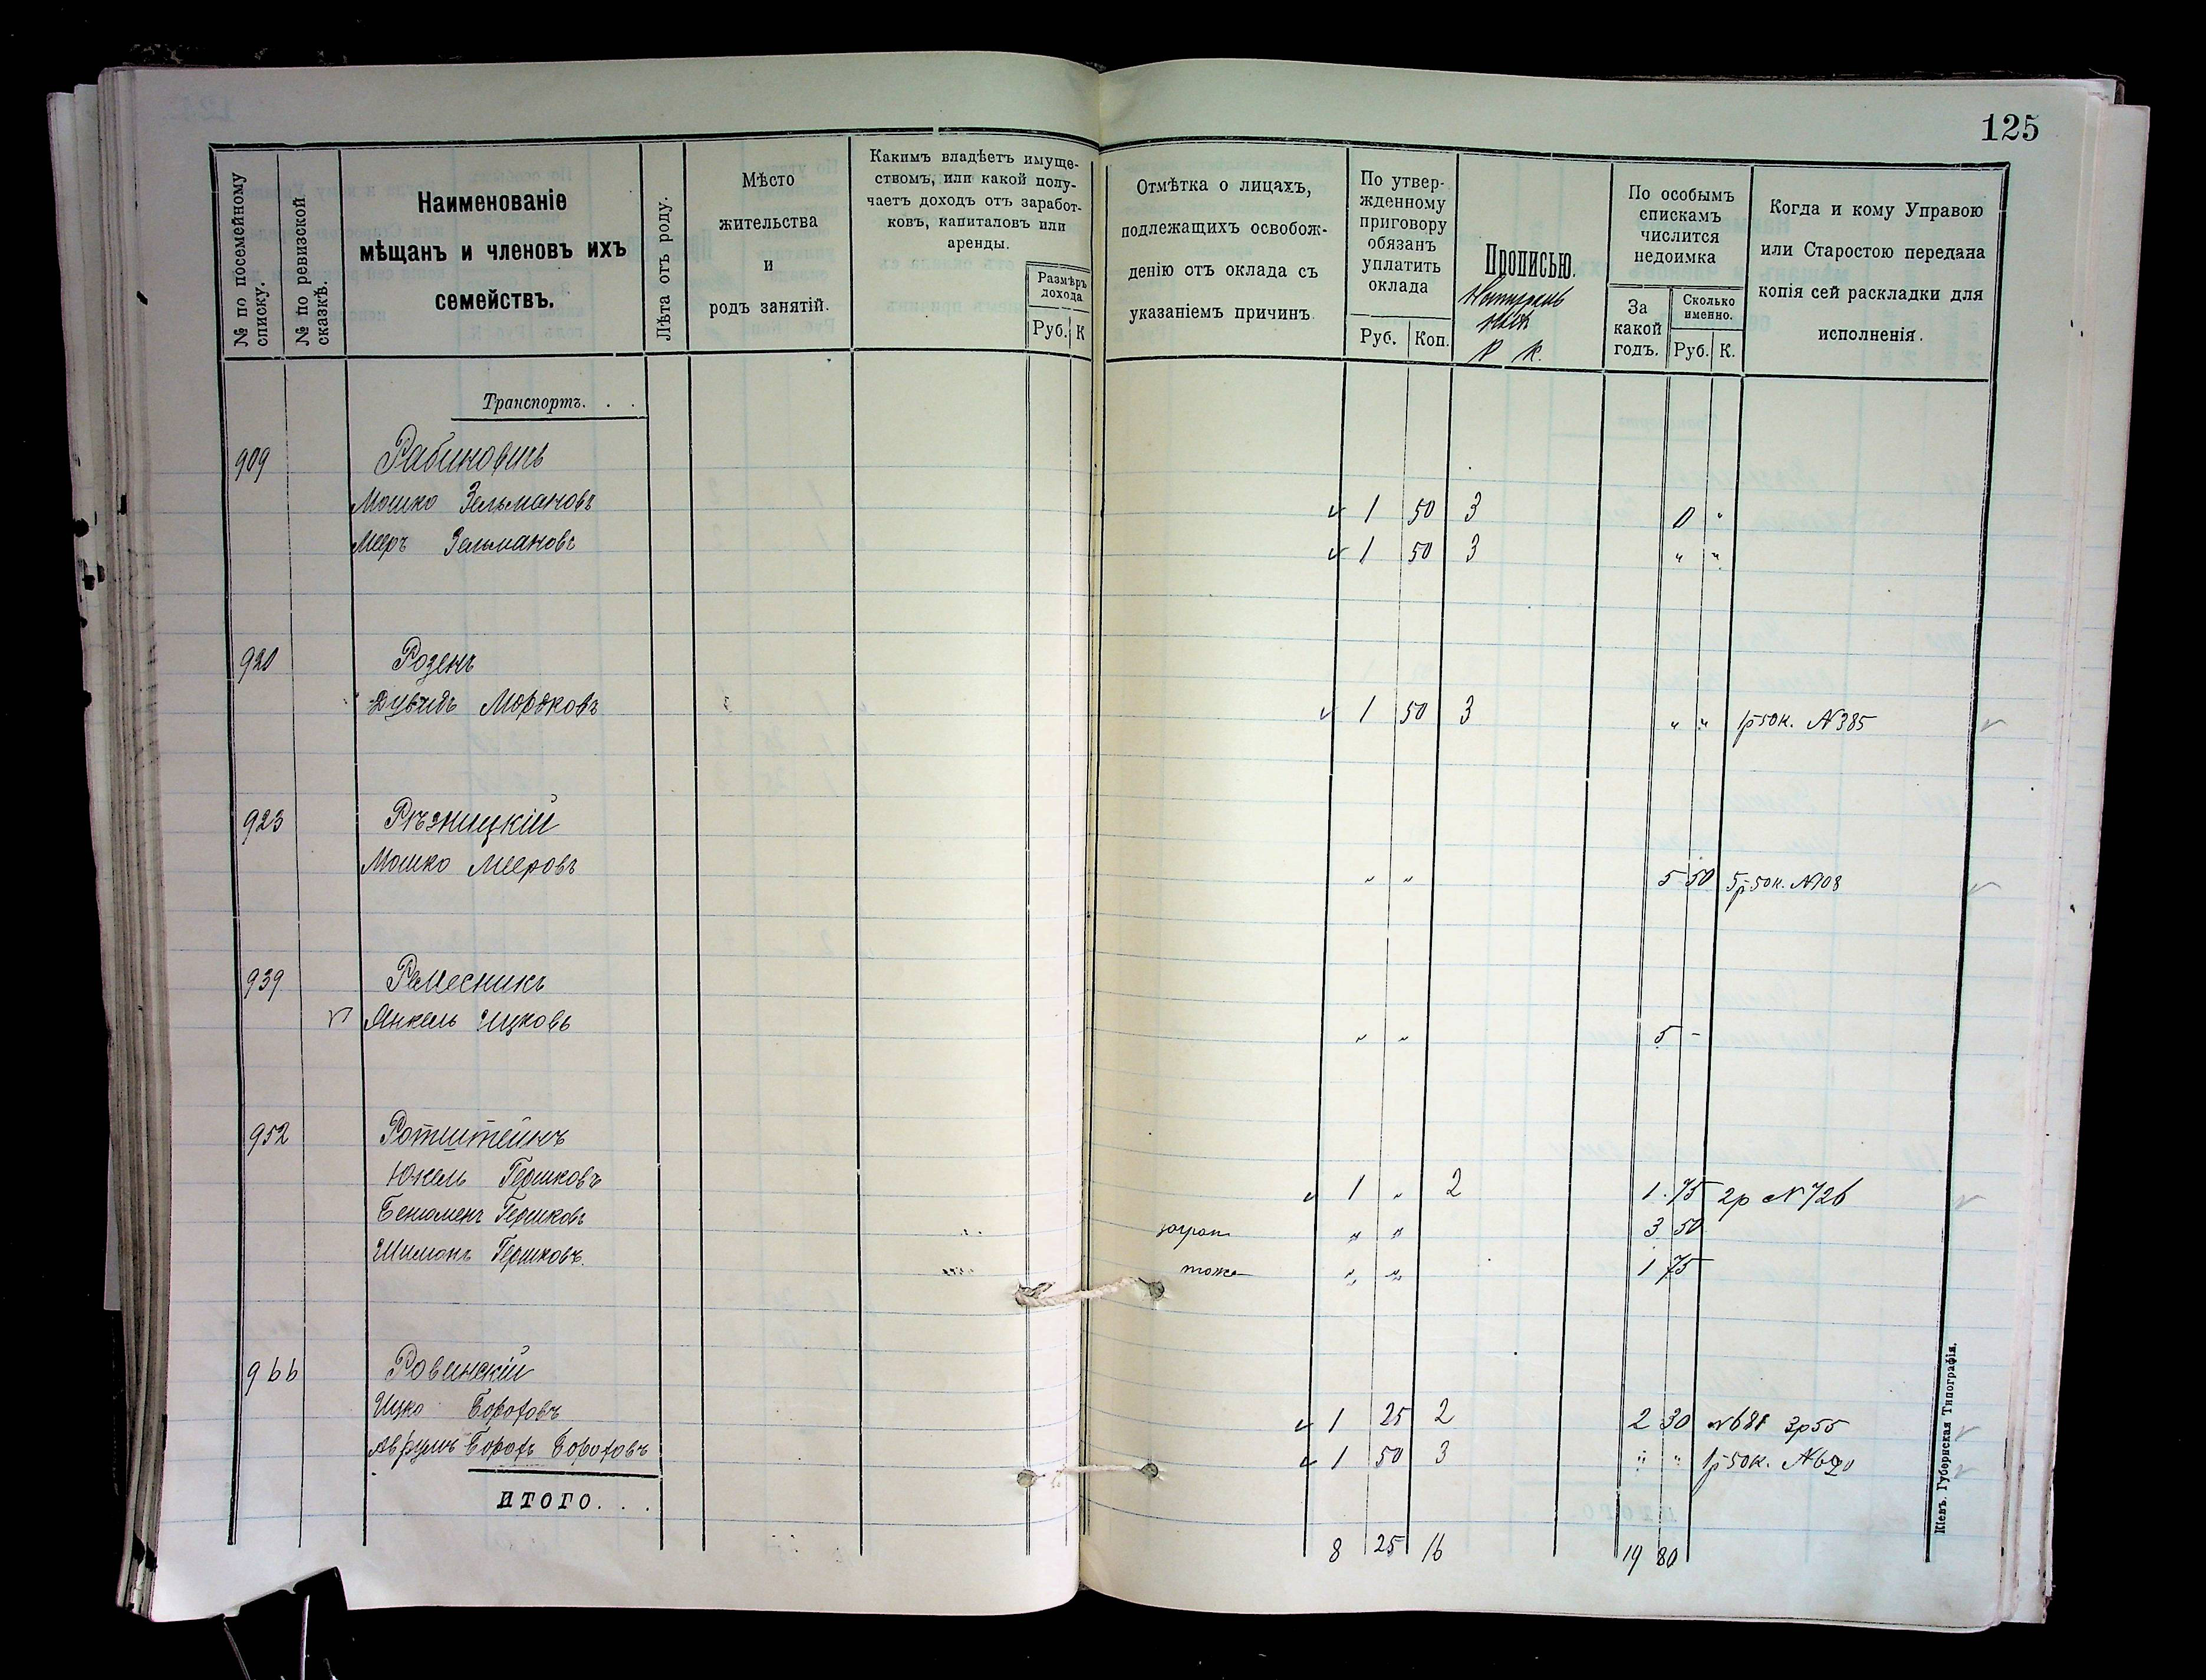 125
№ по посемейному списку.
№ по ревизской сказкѣ.
Наименованіе
мѣщанъ и членовъ ихъ
семействъ.
Лѣта отъ роду.
Мѣсто
жительства
и
родъ занятій.
Какимъ владѣетъ имуще-
ствомъ, или какой полу-
чаетъ доходъ отъ заработ-
ковъ, капиталовъ или
аренды.
Размѣръ
дохода
Руб. К
Отмѣтка о лицахъ,
подлежащихъ освобож-
денію отъ оклада съ
указаніемъ причинъ.
По утвер-
жденному
приговору
обязанъ
уплатить
оклада
Руб. Коп.
Прописью.
Р К.
По особымъ
спискамъ
числится
недоимка
За
какой
годъ.
Сколько
именно.
Руб. К.
Когда и кому Управою
или Старостою передана
копія сей раскладки для
исполненія.
Транспортъ. . .
909 Рабиновичъ
Мошко Зельмановъ 1 50 3 0 "
Меер​ъ Зельмановъ 1 50 3 " "
920 Розенъ
Дувидъ Мордковъ 1 50 3 " " 1р 50к. №385
923 Рѣзницкій
Мошко Мееровъ " " 5 50 5р 50к. №108
939 Ремесникъ
Янкель Ицковъ " " 5 -
952 Ротштейнъ
Юкель Гершковъ 1 " 2 1.75 2р №726
Бенюменъ Гершковъ " " 3 50
Шимонъ Гершковъ. тоже " " 1 75
966 Ровинскій
Ицко Бороховъ 1 25 2 2 30 №688 3р55
Аврумъ Борохъ Бороховъ 1 50 3 " " 1р 50к.
ИТОГО. . .
8 25 16 19 80
Кіевъ. Губернская Типографія.